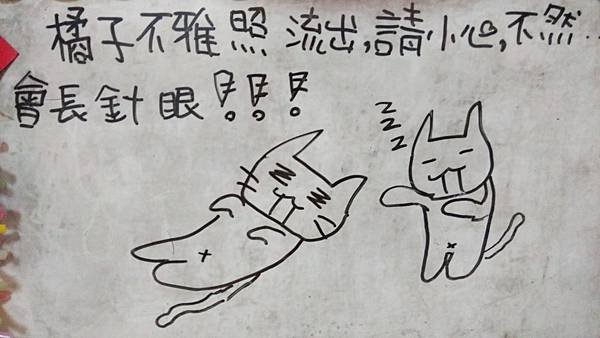 橘子不雅照流出,請小心,不然..
會長針眼!!!
z
z
z